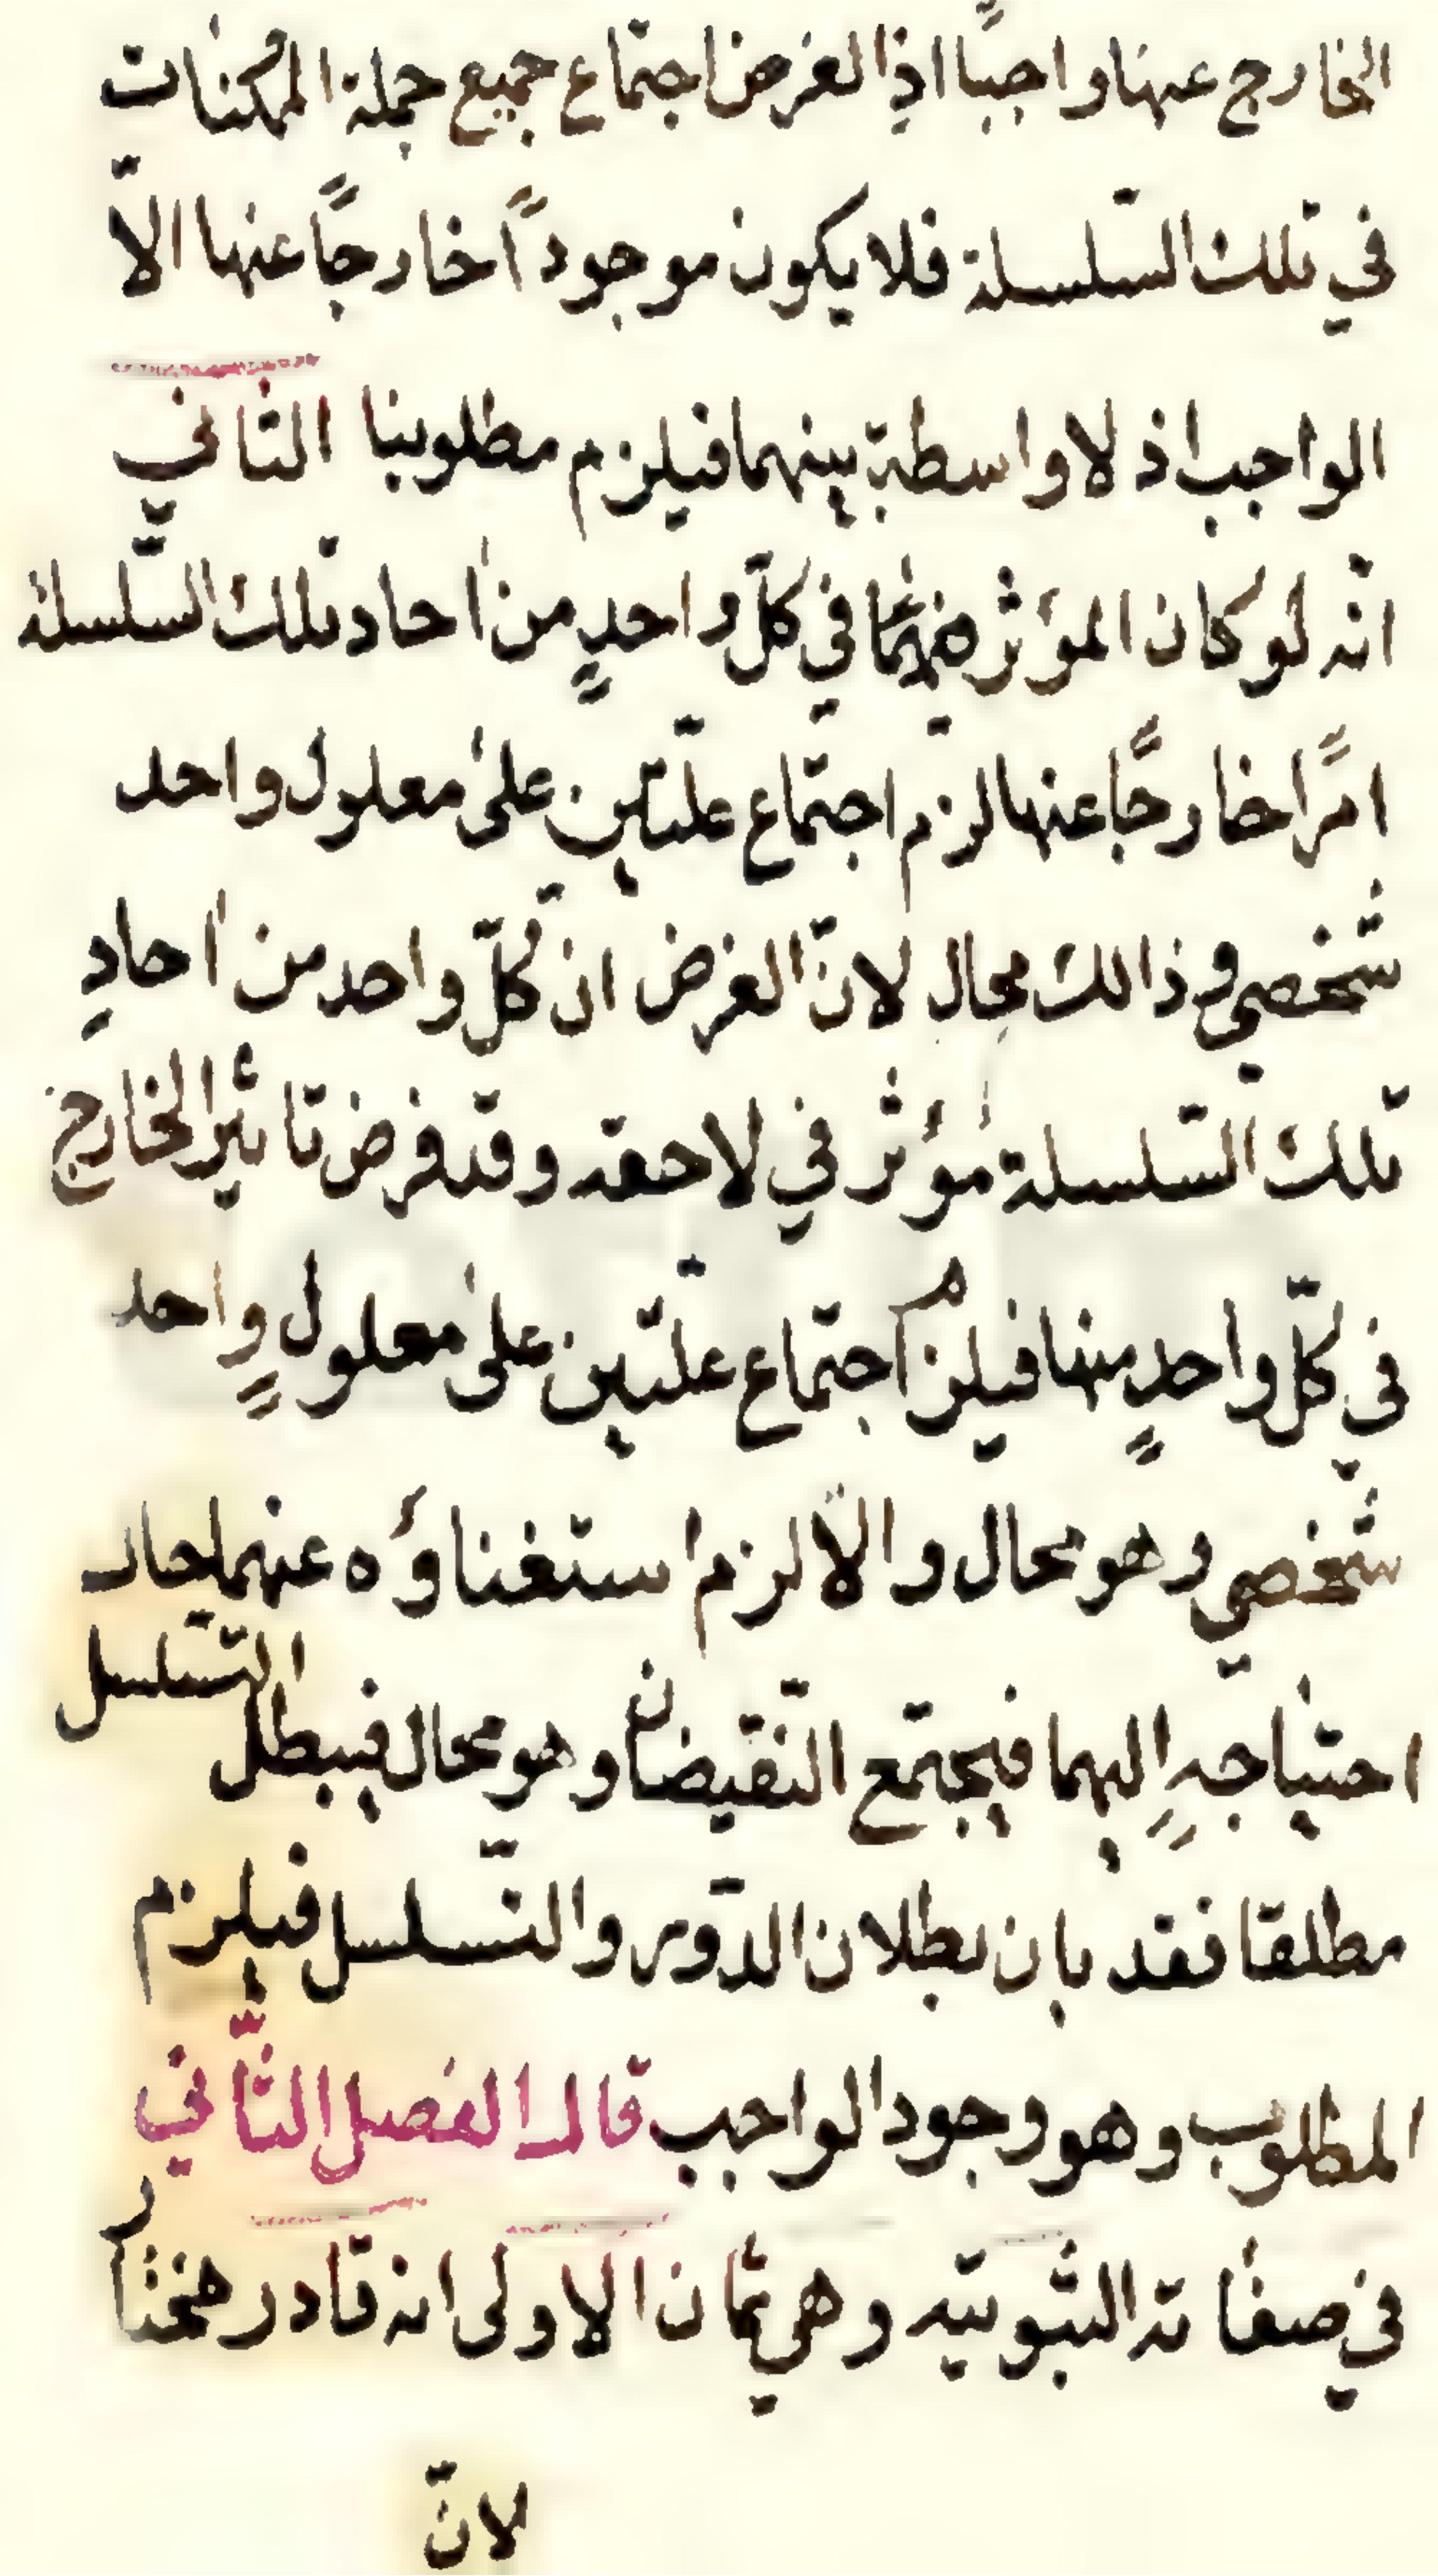 الخارج عنها واجبًا اذِ الغرض اجتماع جميع جملة الممكنات
في تلك السّلسلة فلا يكون موجودًا خارجًا عنها الّا
الواجب اذ لا واسطة بينهما فيلزم مطلوبنا الثاني
انّه لو كان المؤثر في كلّ واحدٍ من احاد تلك السّلسلة
امرًا خارجًا عنها لزم اجتماع علّتين على معلول واحد
شخصي وذالك محال لانّ الغرض ان كلّ واحد من احادِ
تلك السّلسلة مؤثر في لاحقه وقد فرض تاثير الخارج
في كلّ واحدٍ منها فيلزم اجتماع علّتين على معلولٍ واحد
شخصي وهو محال والّا لزم استغناؤه عنهما حال
احتياجهِ اليهما فيجتمع النّقيضان وهو محال فيبطل التّسلسل
مطلقا فقد بان بطلان الدّور والتّسلسل فيلزم
المطلوب وهو وجود الواجب قال الفصل الثّاني
في صفاته الثبوتيّه وهي ثمان الاولى انه قادر مختار
لانّ